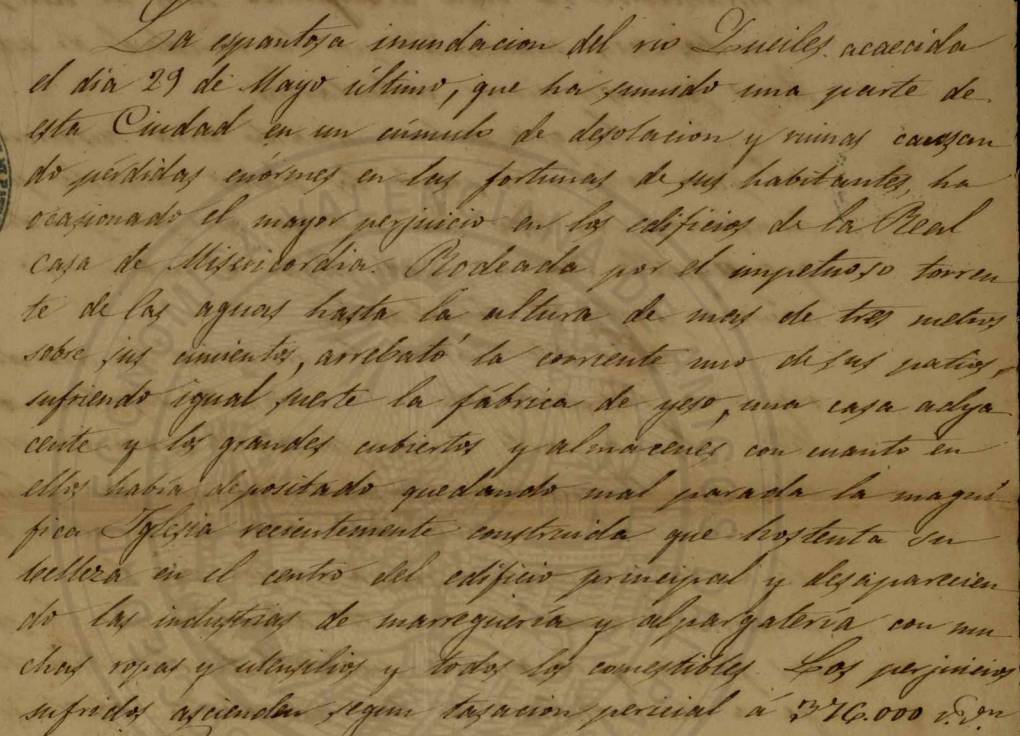 La espantosa inundacion del rio Queiles acaecida
el dia 29 de Mayo último, que ha sumido una parte de
esta Ciudad en un cúmulo de desolacion y ruinas causan
do pérdidas enórmes en las fortunas de sus habitantes, ha
ocasionado el mayor perjuicio en los edificios de la Real
casa de Misericordia. Rodeada por el impetuoso torren
te de las aguas hasta la altura de mas de tres metros
sobre sus cimientos, arrebató la corriente uno de sus patios,
sufriendo igual suerte la fábrica de yeso, una casa adya
cente y los grandes cubiertos y almacenes con cuanto en
ellos habia depositado quedando mal parada la magní
fica Iglesia recientemente construida que hostenta su
belleza en el centro del edificio principal y desaparecien
do las industrias de marreguería y alpargatería con mu
chas ropas y utensilios y todos los comestibles. Los perjuicios
sufridos ascienden segun tasacion pericial á 376.000 r.s v.n